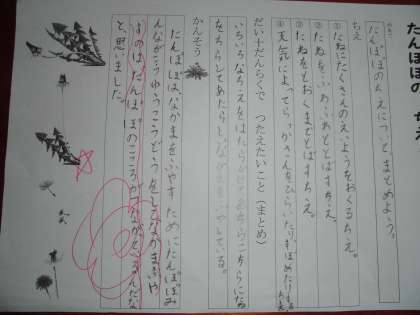 たんぽぽの ちえ
めあて
たんぽぽのちえについて、まとめよう。
ちえ
①たねにたくさんのえいようをおくるちえ。
②たねを ふわふわととばすちえ。
③たねをとおくまでとばすちえ。
④天気によってらっかさんをひらいたりすぼめたりするちえ
だい十だんらくで つたえたいこと(まとめ)
いろいろなちえをはたらかせ、あちらこちらにたね
をちらしてあたらしいなかまをふやしている。
かんそう
たんぽぽは、なかまをふやすためにたんぽぽはみ
んながきょうりょくこうどうをしてなかまをふや
すのは、たんぽぽのこころがつながっているんだな
と、思いました。